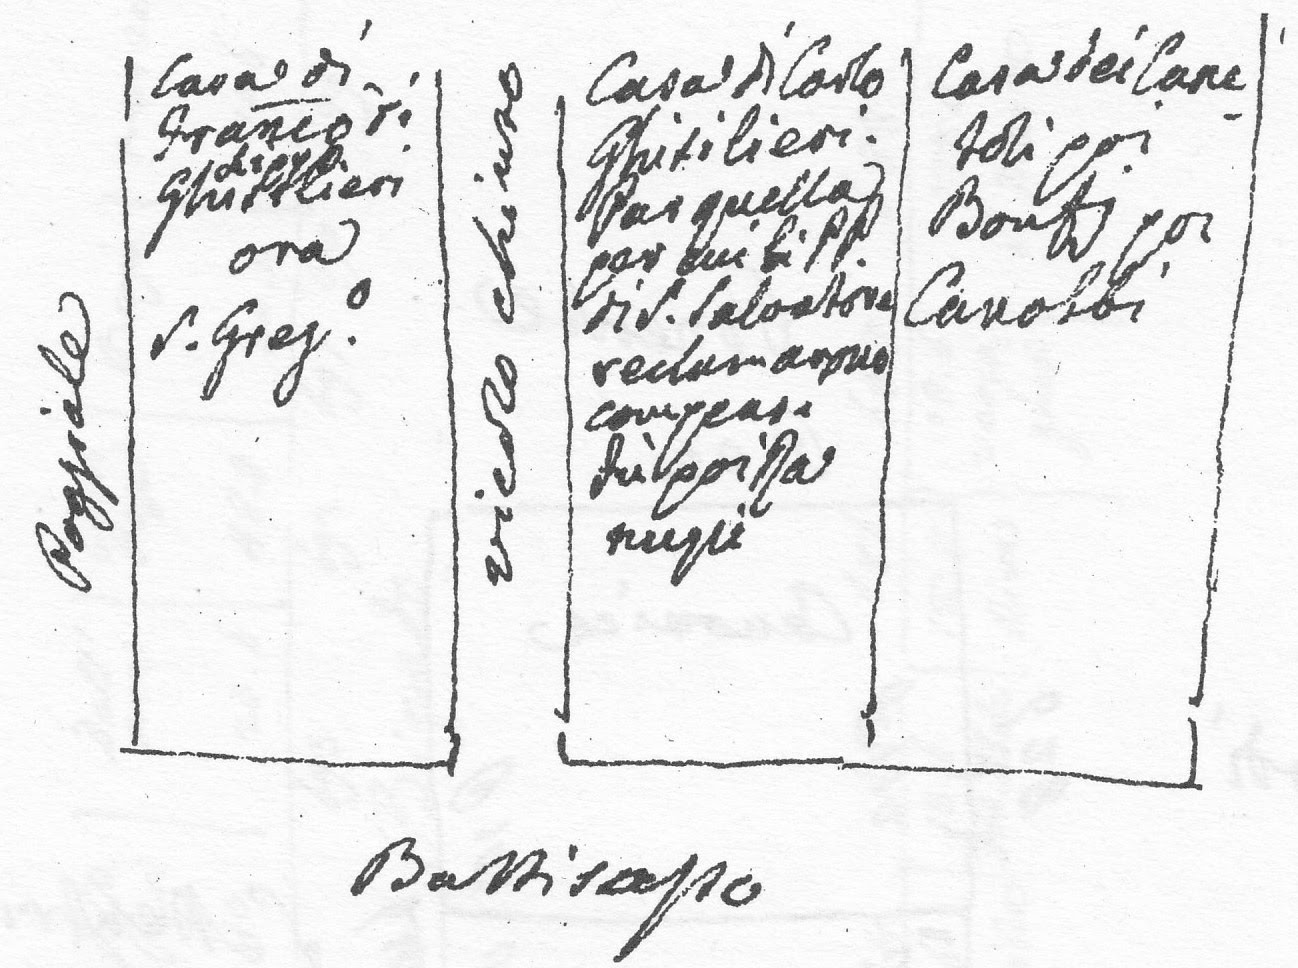 Poggiale
Casa di
Franco di
Ghisilieri
ora
S. Greg.º
vicolo chiuso
Casa di Carlo
Ghisilieri.
Pasquella
per cui li PP.
di S. Salvatore
reclamarono
compensi
di più
Casa dei Cane-
toli poi
Bonfj poi
Canobbi
Battisasso